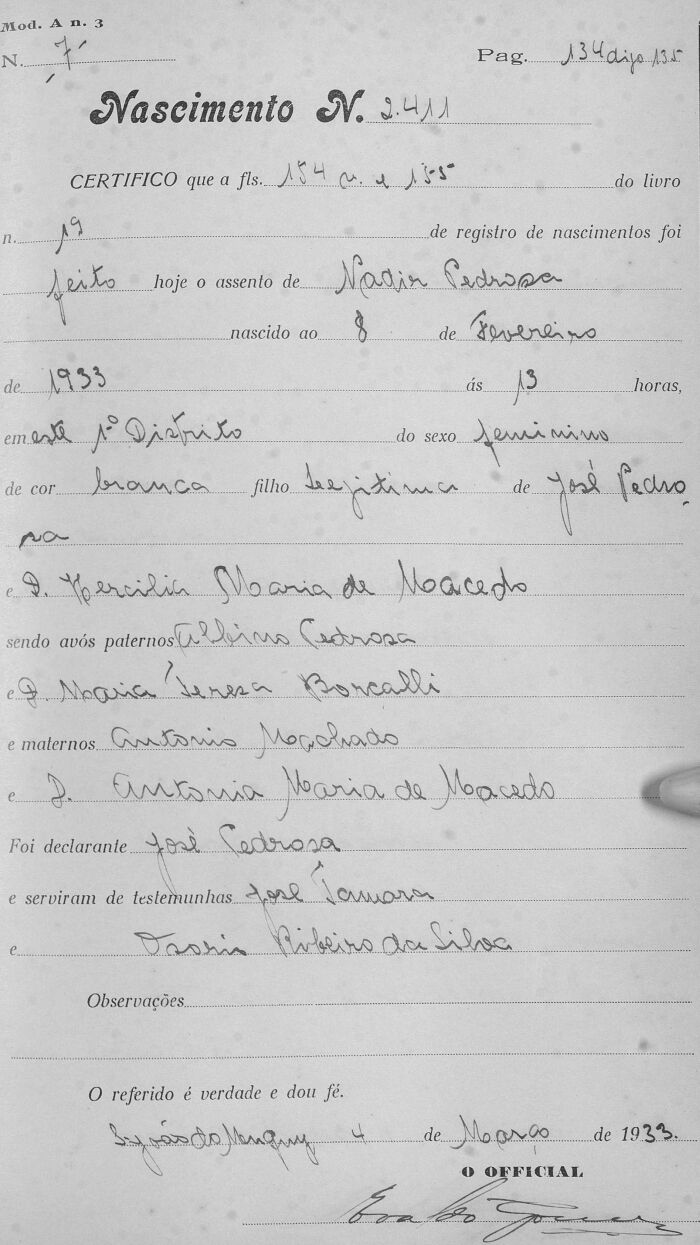 Mod. A n. 3
N. 7 Pag. 134 digo 135
Nascimento N. 2.411
CERTIFICO que a fls. 154 v. e 155 do livro
n. 19 de registro de nascimentos foi
feito hoje o assento de Nadir Pedrosa
nascido ao 8 de Fevereiro
de 1933 ás 13 horas,
em este 1º Distrito do sexo feminino
de cor branca filho Legitima de José Pedro
sa
e D. Hercilia Maria de Macedo
sendo avós paternos Albino Pedrosa
e D. Maria Teresa Borcalli
e maternos Antonio Machado
e D. Antonia Maria de Macedo
Foi declarante José Pedrosa
e serviram de testemunhas José Tamara
e Osorio Ribeiro da Silva
Observações
O referido é verdade e dou fé.
4 de Março de 1933.
O OFFICIAL